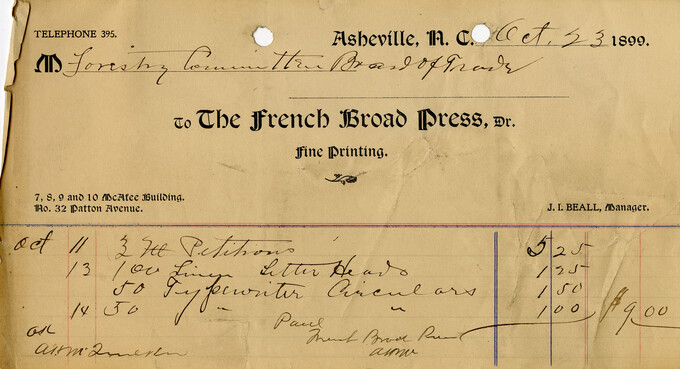 TELEPHONE 395.
Asheville, N. C. Oct. 23 1899.
M Forestry Committee Board of Trade
To The French Broad Press, Dr.
Fine Printing.
7, 8, 9 and 10 McAfee Building.
No. 32 Patton Avenue.
J. I. BEALL, Manager.
Oct 11 Petitions 5 25
13 100 Linen Letter Heads 1 25
50 Typewriter Circulars 1 50
14 50 " " 1 00 $9.00
OK Paid
French Broad Press